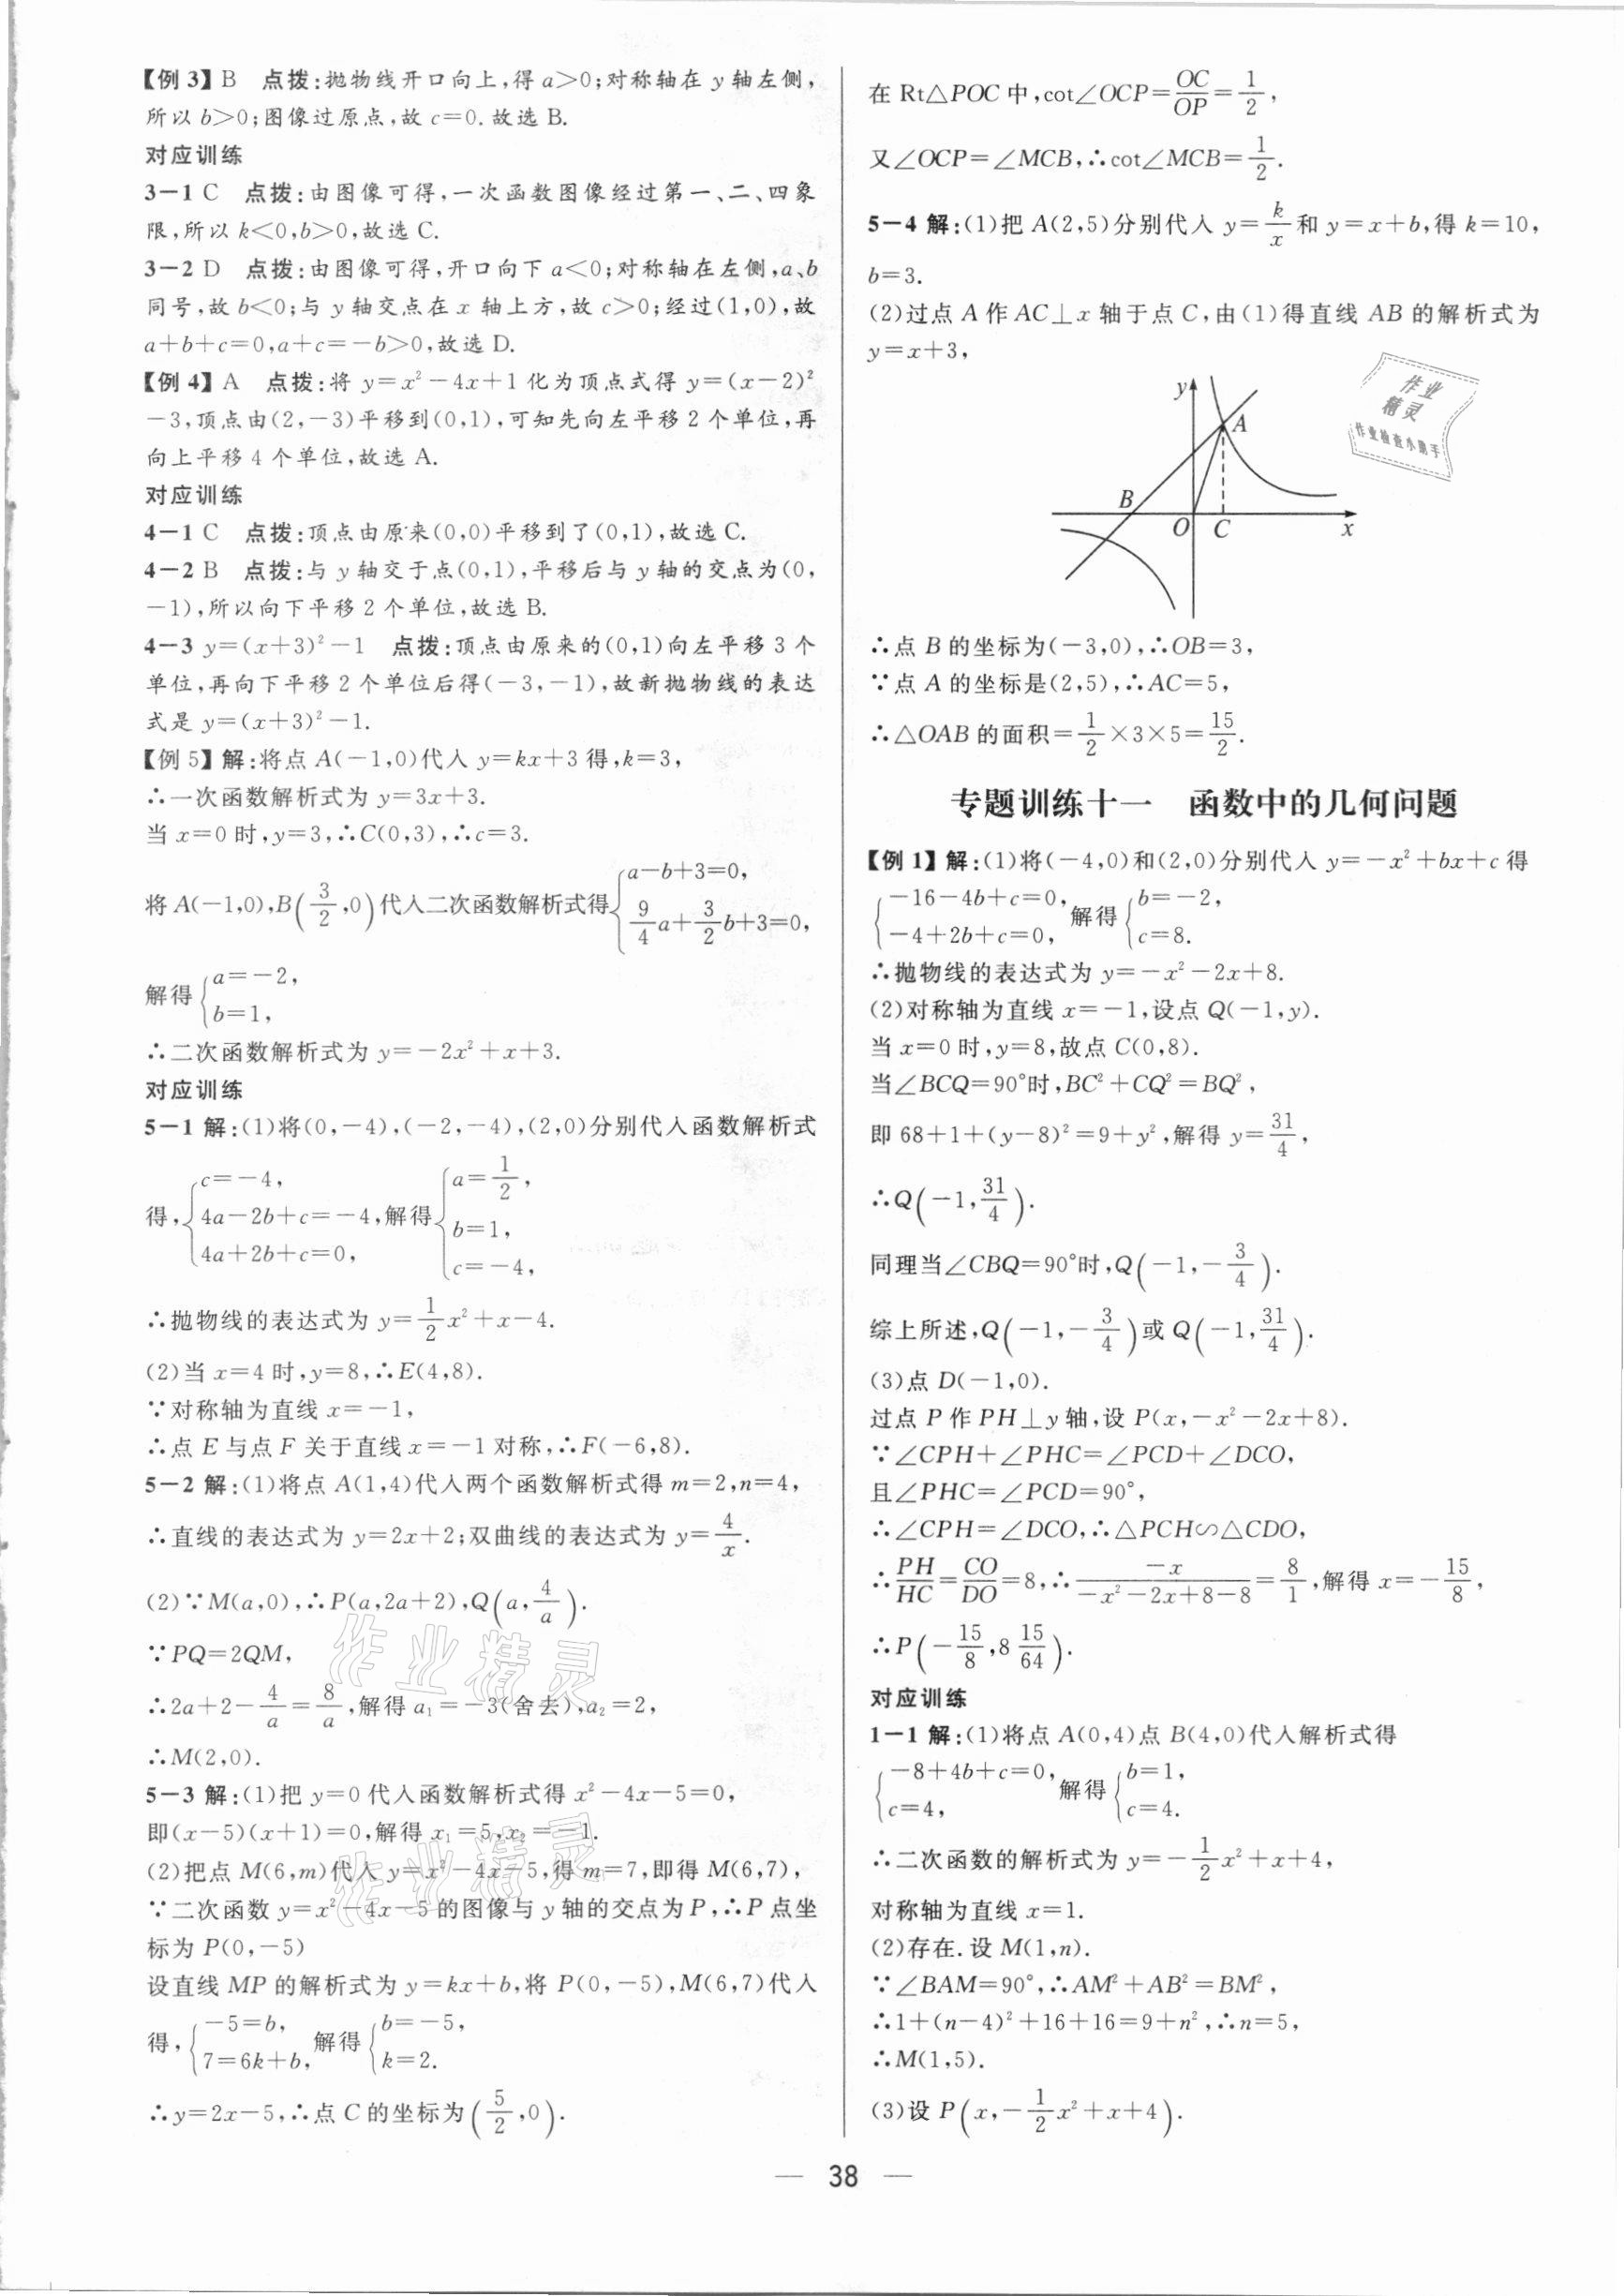 【例 3】B 点拨:抛物线开口向上,得 a>0;对称轴在 y 轴左侧,
所以 b>0;图像过原点,故 c=0. 故选 B.
对应训练
3-1 C 点拨:由图像可得,一次函数图像经过第一、二、四象
限,所以 k<0,b>0,故选 C.
3-2 D 点拨:由图像可得,开口向下 a<0;对称轴在左侧,a、b
同号,故 b<0;与 y 轴交点在 x 轴上方,故 c>0;经过(1,0),故
a+b+c=0,a+c=-b>0,故选 D.
【例 4】A 点拨:将 y=x²-4x+1 化为顶点式得 y=(x-2)²
-3,顶点由(2,-3)平移到(0,1),可知先向左平移 2 个单位,再
向上平移 4 个单位,故选 A.
对应训练
4-1 C 点拨:顶点由原来(0,0)平移到了(0,1),故选 C.
4-2 B 点拨:与 y 轴交于点(0,1),平移后与 y 轴的交点为(0,
-1),所以向下平移 2 个单位,故选 B.
4-3 y=(x+3)²-1 点拨:顶点由原来的(0,1)向左平移 3 个
单位,再向下平移 2 个单位后得(-3,-1),故新抛物线的表达
式是 y=(x+3)²-1.
【例 5】解:将点 A(-1,0)代入 y=kx+3 得,k=3,
∴一次函数解析式为 y=3x+3.
当 x=0 时,y=3,∴C(0,3),∴c=3.
将 A(-1,0),B(3/2,0)代入二次函数解析式得{a-b+3=0, 9/4a+3/2b+3=0,
解得{a=-2, b=1,
∴二次函数解析式为 y=-2x²+x+3.
对应训练
5-1 解:(1)将(0,-4),(-2,-4),(2,0)分别代入函数解析式
得,{c=-4, 4a-2b+c=-4, 4a+2b+c=0, 解得{a=1/2, b=1, c=-4,
∴抛物线的表达式为 y=1/2x²+x-4.
(2)当 x=4 时,y=8,∴E(4,8).
∵对称轴为直线 x=-1,
∴点 E 与点 F 关于直线 x=-1 对称,∴F(-6,8).
5-2 解:(1)将点 A(1,4)代入两个函数解析式得 m=2,n=4,
∴直线的表达式为 y=2x+2;双曲线的表达式为 y=4/x.
(2)∵M(a,0),∴P(a,2a+2),Q(a,4/a).
∵PQ=2QM,
∴2a+2-4/a=8/a,解得 a₁=-3(舍去),a₂=2,
∴M(2,0).
5-3 解:(1)把 y=0 代入函数解析式得 x²-4x-5=0,
即(x-5)(x+1)=0,解得 x₁=5,x₂=-1.
(2)把点 M(6,m)代入 y=x²-4x-5,得 m=7,即得 M(6,7),
∵二次函数 y=x²-4x-5 的图像与 y 轴的交点为 P,∴P 点坐
标为 P(0,-5)
设直线 MP 的解析式为 y=kx+b,将 P(0,-5),M(6,7)代入
得,{-5=b, 7=6k+b, 解得{b=-5, k=2.
∴y=2x-5,∴点 C 的坐标为(5/2,0).
在 Rt△POC 中,cot∠OCP=OC/OP=1/2,
又∠OCP=∠MCB,∴cot∠MCB=1/2.
5-4 解:(1)把 A(2,5)分别代入 y=k/x和 y=x+b,得 k=10,
b=3.
(2)过点 A 作 AC⊥x 轴于点 C,由(1)得直线 AB 的解析式为
y=x+3,
y
A
B
O
C
x
作业
精灵
作业检查小助手
∴点 B 的坐标为(-3,0),∴OB=3,
∵点 A 的坐标是(2,5),∴AC=5,
∴△OAB 的面积=1/2×3×5=15/2.
专题训练十一 函数中的几何问题
【例 1】解:(1)将(-4,0)和(2,0)分别代入 y=-x²+bx+c 得
{-16-4b+c=0, -4+2b+c=0, 解得{b=-2, c=8.
∴抛物线的表达式为 y=-x²-2x+8.
(2)对称轴为直线 x=-1,设点 Q(-1,y).
当 x=0 时,y=8,故点 C(0,8).
当∠BCQ=90°时,BC²+CQ²=BQ²,
即 68+1+(y-8)²=9+y²,解得 y=31/4,
∴Q(-1,31/4).
同理当∠CBQ=90°时,Q(-1,-3/4).
综上所述,Q(-1,-3/4)或 Q(-1,31/4).
(3)点 D(-1,0).
过点 P 作 PH⊥y 轴,设 P(x,-x²-2x+8).
∵∠CPH+∠PHC=∠PCD+∠DCO,
且∠PHC=∠PCD=90°,
∴∠CPH=∠DCO,∴△PCH∽△CDO,
∴PH/HC=CO/DO=8,∴-x/(-x²-2x+8-8)=8/1,解得 x=-15/8,
∴P(-15/8,8 15/64).
对应训练
1-1 解:(1)将点 A(0,4)点 B(4,0)代入解析式得
{-8+4b+c=0, c=4, 解得{b=1, c=4.
∴二次函数的解析式为 y=-1/2x²+x+4,
对称轴为直线 x=1.
(2)存在.设 M(1,n).
∵∠BAM=90°,∴AM²+AB²=BM²,
∴1+(n-4)²+16+16=9+n²,∴n=5,
∴M(1,5).
(3)设 P(x,-1/2x²+x+4).
作业精灵
作业精灵
— 38 —